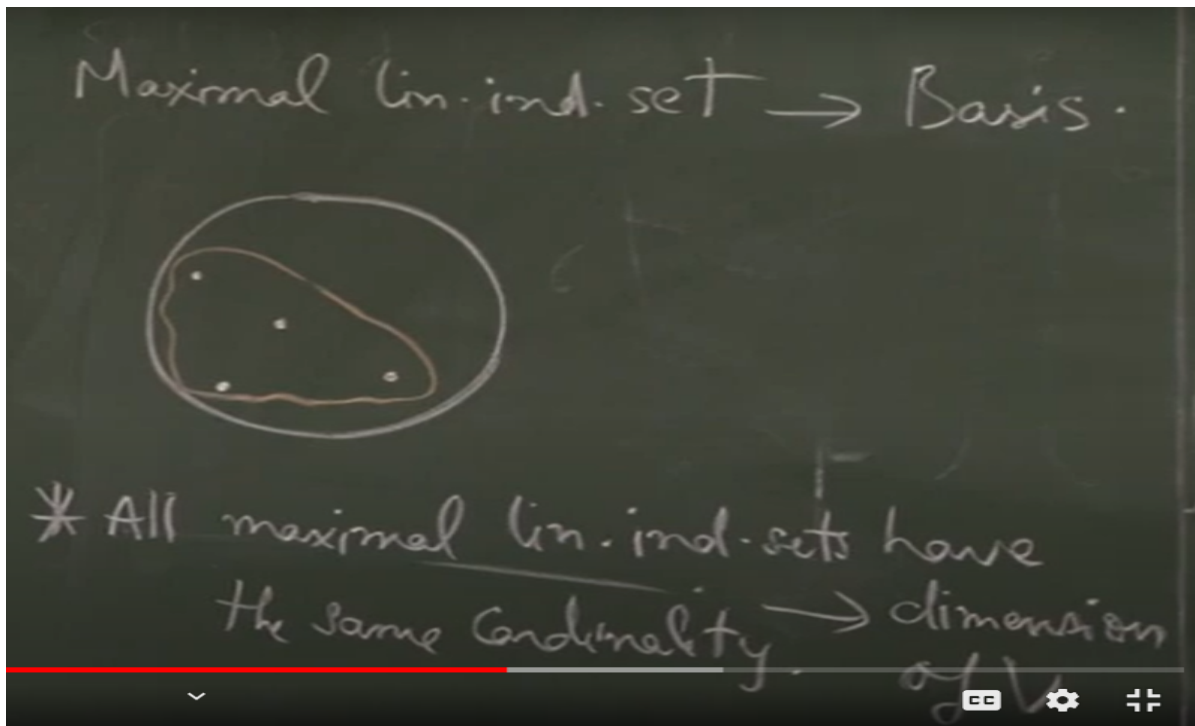 Maximal lin. ind. set → Basis.
* All maximal lin. ind. sets have
the same Cardinality. → dimension
of V
CC